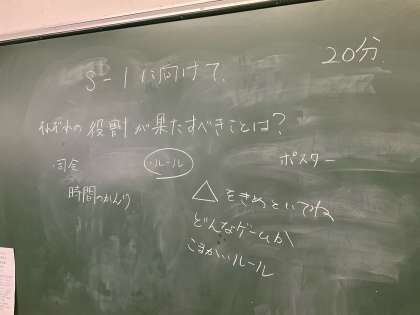 S-1に向けて、
20分.
それぞれの役割が果たすべきことは?
・司会
時間のかんり
ルール
△をきめといてね
どんなゲームか
こまかいルール
ポスター